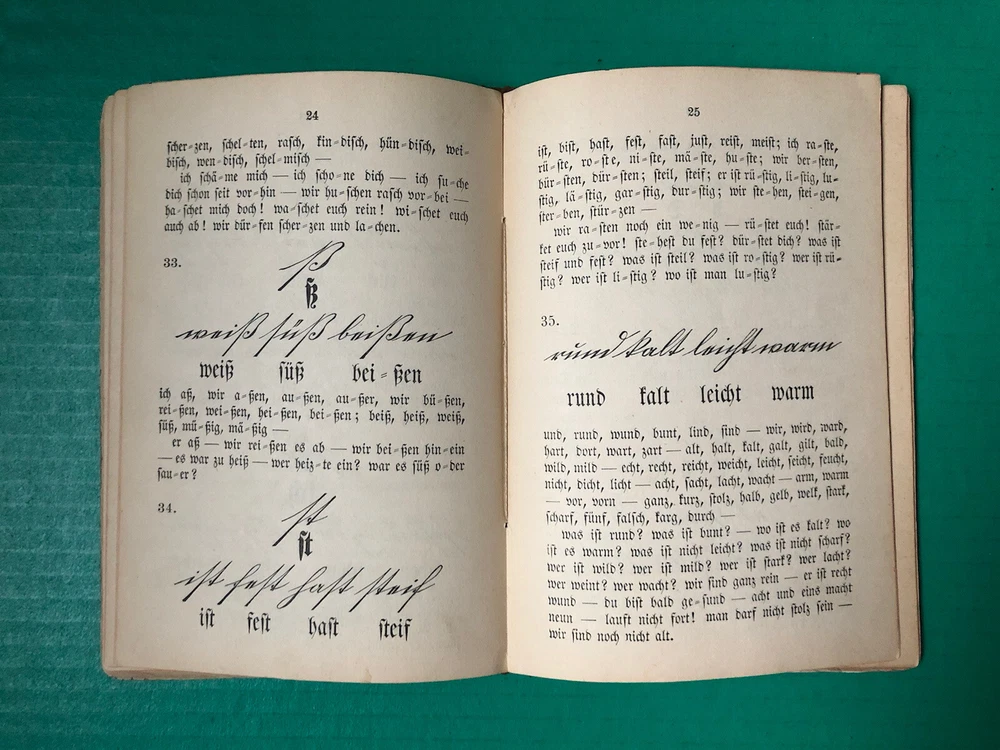 24
scher-zen, schel-ten, rasch, kin-disch, hün-disch, wei-
bisch, wen-disch, schel-misch —
ich schä-me mich — ich scho-ne dich — ich su-che
dich schon seit vor-hin — wir hu-schen rasch vor-bei —
ha-schet mich doch! wa-schet euch rein! wi-schet euch
auch ab! wir dür-fen scher-zen und la-chen.
33.
ß
ß
weiß süß beißen
weiß süß bei-ßen
ich aß, wir a-ßen, au-ßen, au-ßer, wir bü-ßen,
rei-ßen, wei-ßen, hei-ßen, bei-ßen; beiß, heiß, weiß,
süß, mü-ßig, mä-ßig —
er aß — wir rei-ßen es ab — wir bei-ßen hin-ein
— es war zu heiß — wer heiz-te ein? war es süß o-der
sau-er?
34.
st
st
ist fest hast steif
ist fest hast steif
25
ist, bist, hast, fest, fast, just, reist, meist; ich ra-ste,
rü-ste, ro-ste, ni-ste, mä-ste, hu-ste; wir ber-sten,
bür-sten, dür-sten; steil, steif; er ist rü-stig, li-stig, lu-
stig, lä-stig, gar-stig, dur-stig; wir ste-hen, stei-gen,
ster-ben, stür-zen —
wir ra-sten noch ein we-nig — rü-stet euch! stär-
ket euch zu-vor! ste-hest du fest? dür-stet dich? was ist
steif und fest? was ist steil? was ist ro-stig? wer ist rü-
stig? wer ist li-stig? wo ist man lu-stig?
35.
rund kalt leicht warm
rund kalt leicht warm
und, rund, wund, bunt, lind, sind — wir, wird, ward,
hart, dort, wart, zart — alt, halt, kalt, galt, gilt, bald,
wild, mild — echt, recht, reicht, weicht, leicht, seicht, feucht,
nicht, dicht, licht — acht, sacht, lacht, wacht — arm, warm
— vor, vorn — ganz, kurz, stolz, halb, gelb, welk, stark,
scharf, fünf, falsch, karg, durch —
was ist rund? was ist bunt? — wo ist es kalt? wo
ist es warm? was ist nicht leicht? was ist nicht scharf?
wer ist wild? wer ist mild? wer ist stark? wer lacht?
wer weint? wer wacht? wir sind ganz rein — er ist recht
wund — du bist bald ge-sund — acht und eins macht
neun — lauft nicht fort! man darf nicht stolz sein —
wir sind noch nicht alt.